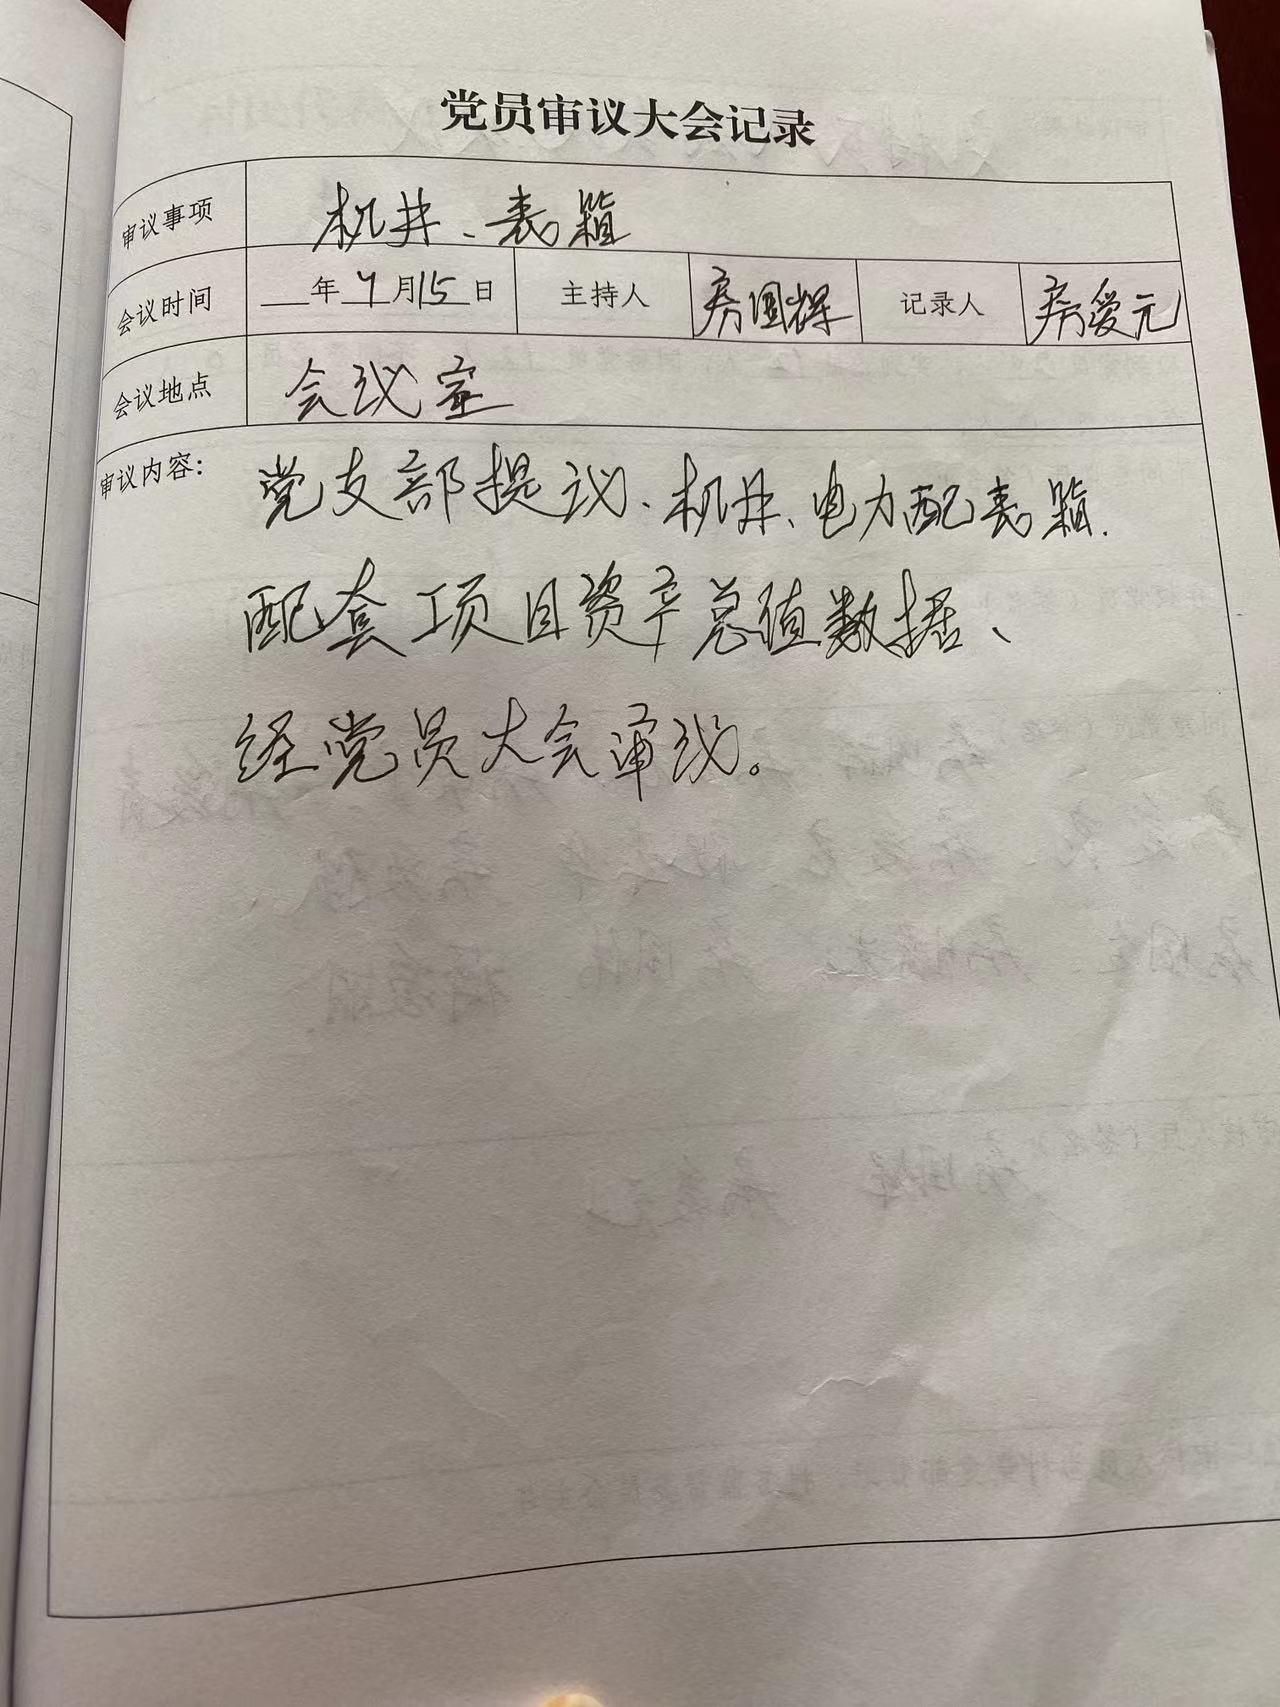 党员审议大会记录
审议事项 机井、表箱
会议时间 年 月15日 主持人 房国辉 记录人 房爱元
会议地点 会议室
审议内容: 党支部提议、机井、电力配表箱.
配套项目资产总值数据、
经党员大会审议。